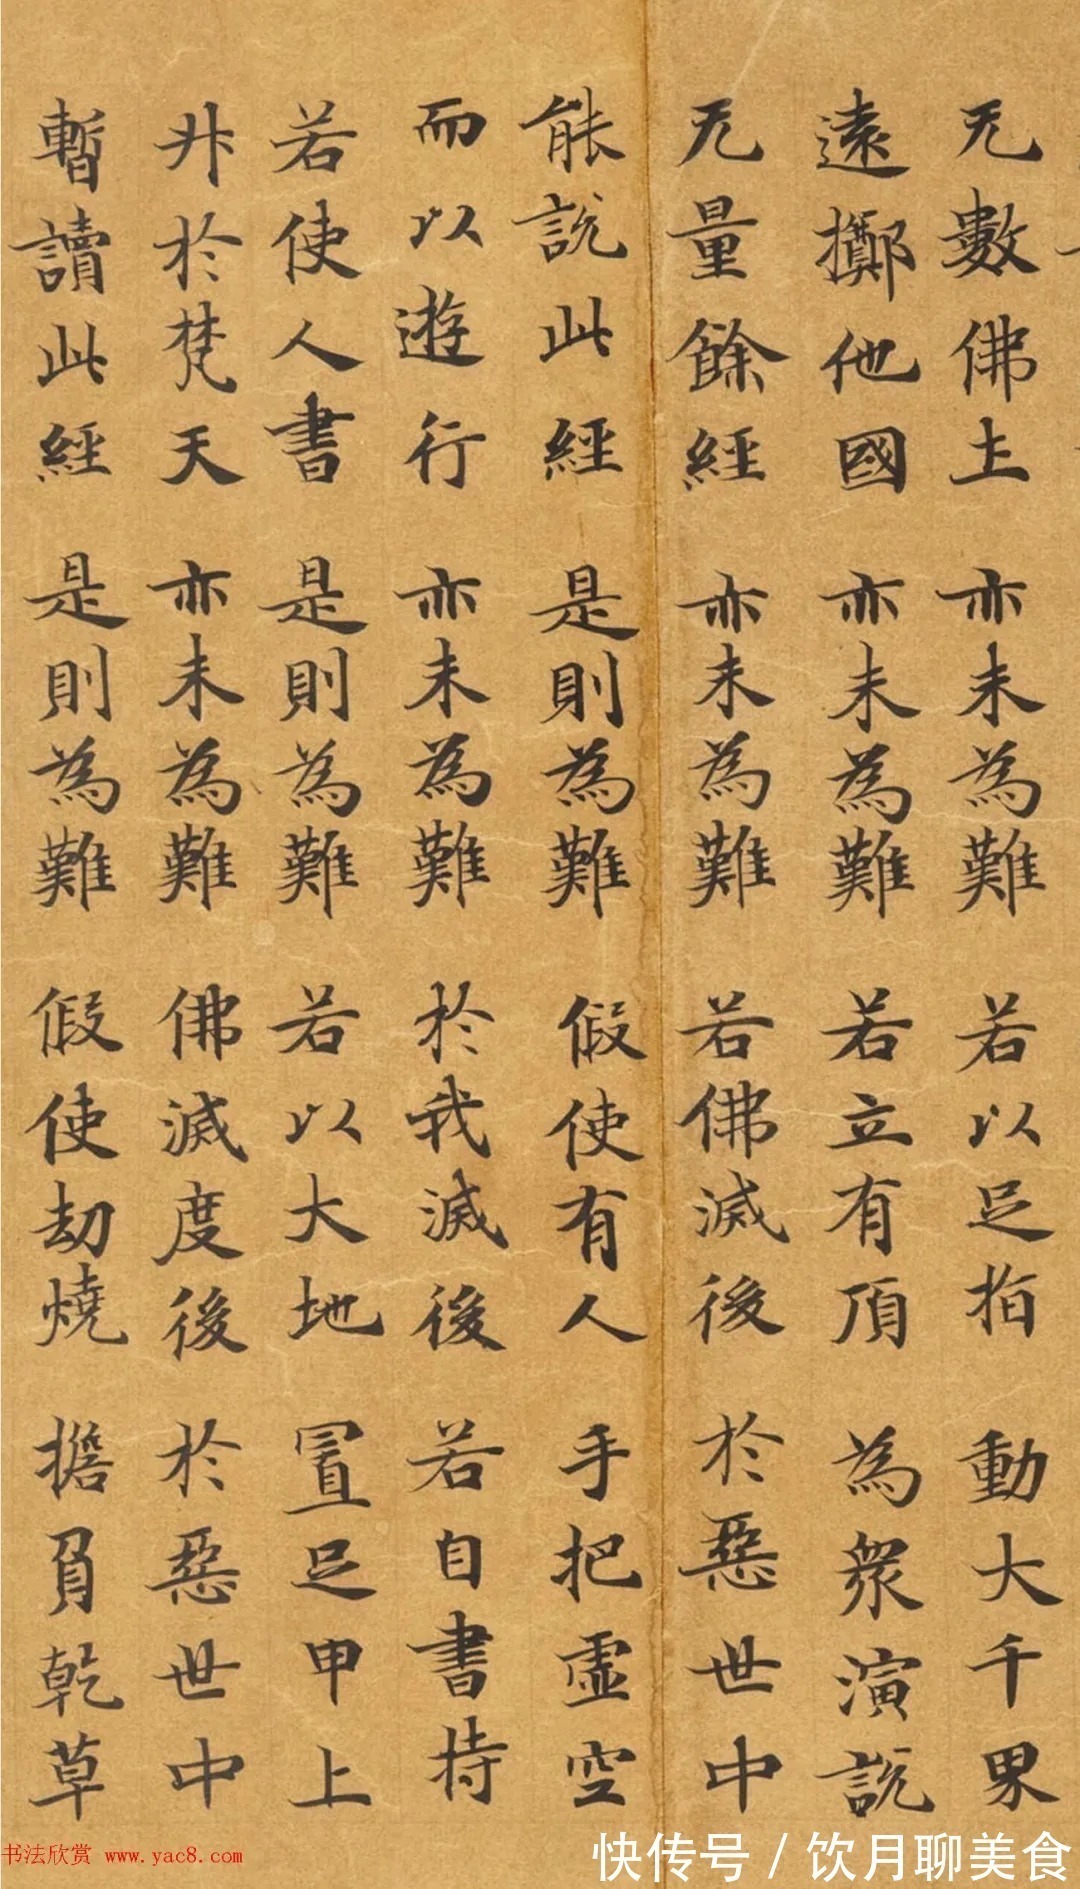 无數佛土 亦未為難 若以足指 動大千界
遠擲他國 亦未為難 若立有頂 為眾演說
无量餘經 亦未為難 若佛滅後 於惡世中
能說此經 是則為難 假使有人 手把虛空
而以遊行 亦未為難 於我滅後 若自書持
若使人書 是則為難 若以大地 置足甲上
升於梵天 亦未為難 佛滅度後 於惡世中
暫讀此經 是則為難 假使劫燒 擔負乾草
书法欣赏 www.yac8.com
快传号/饮月聊美食